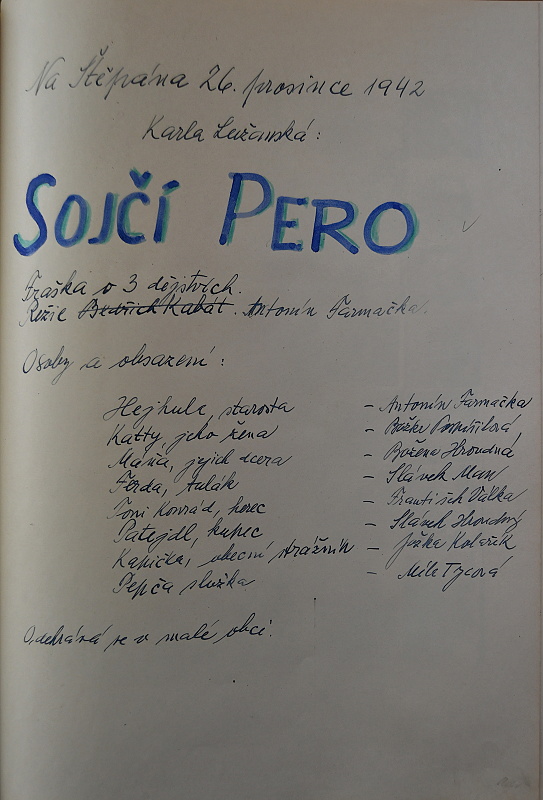 Na Štěpána 26. prosince 1942
Karla Lužanská:
SOJČÍ PERO
Fraška o 3 dějstvích.
Režie Bedřich Kabát. Antonín Farmačka.
Osoby a obsazení:
Hejhule, starosta – Antonín Farmačka
Katty, jeho žena – Božka
Máňa, jejich dcera – Božena Hroudná
Ferda, tulák – Slávek Man
Toni Konrád, herec – František Válka
Patejdl, kupec – Slávek Hroudný
Kapička, obecní strážník – Jožka Kolařík
Pepča služka – Mila Tycová
Odehrává se v malé obci.